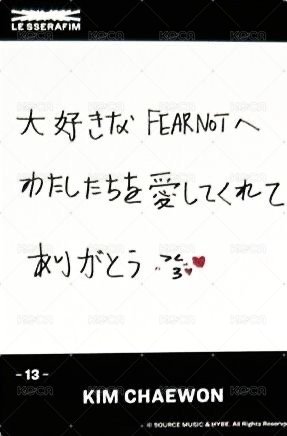 LE SSERAFIM
大好きな FEARNOTへ
わたしたちを愛してくれて
ありがとう
- 13 -
KIM CHAEWON
© SOURCE MUSIC & HYBE. All Rights Reserve